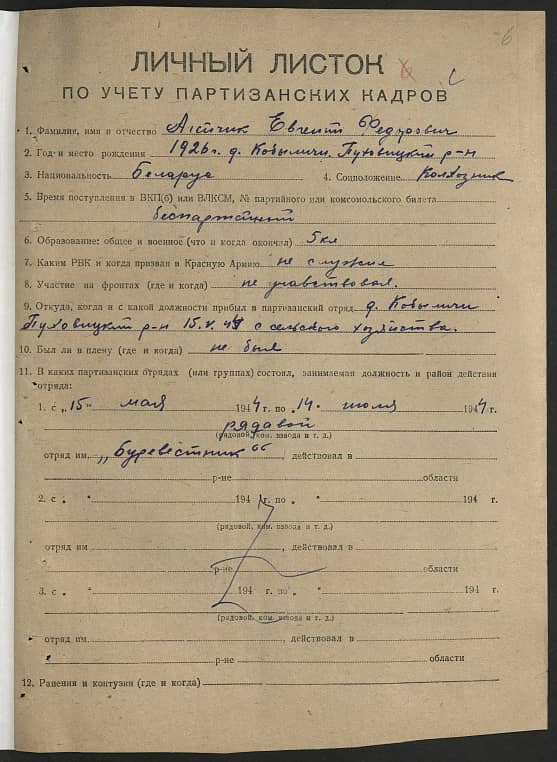 6
ЛИЧНЫЙ ЛИСТОК
ПО УЧЕТУ ПАРТИЗАНСКИХ КАДРОВ
1. Фамилия, имя и отчество Евгений Федорович
2. Год и место рождения 1926 г. д. Кобыличи. Пуховицкий р-н
3. Национальность Беларус 4. Соцположение Колхозник
5. Время поступления в ВКП(б) или ВЛКСМ, № партийного или комсомольского билета
беспартийный
6. Образование: общее и военное (что и когда окончил) 5 кл
7. Каким РВК и когда призван в Красную Армию не служил
8. Участие на фронтах (где и когда) не учавствовал.
9. Откуда, когда и с какой должности прибыл в партизанский отряд д. Кобыличи
Пуховицкий р-н 15.V.44 с сельского хозяйства.
10. Был ли в плену (где и когда) не был
11. В каких партизанских отрядах (или группах) состоял, занимаемая должность и район действия
отряда:
1. с „15" мая 1944 г. по „14" июля 1944 г.
рядавой
(рядовой, ком. взвода и т. д.)
отряд им. „Буревестник", действовал в
р-не области
2. с „ " 194 г. по „ " 194 г.
(рядовой, ком. взвода и т. д.)
отряд им , действовал в
р-не области
3. с „ " 194 г. по „ " 194 г.
(рядовой, ком. взвода и т. д.)
отряд им. , действовал в
р-не области
12. Ранения и контузии (где и когда)